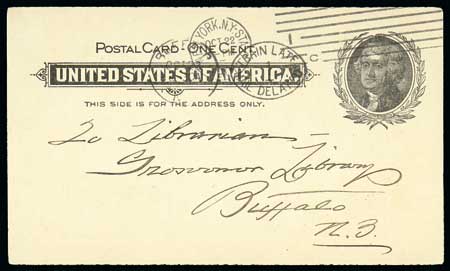 NEW YORK, N.Y. STA.
OCT 22
TRAIN LATE
MAIL DELAYED
C
POSTAL CARD - ONE CENT.
UNITED STATES OF AMERICA.
THIS SIDE IS FOR THE ADDRESS ONLY.
To Librarian -
Grosvenor Library
Buffalo
N.Y.